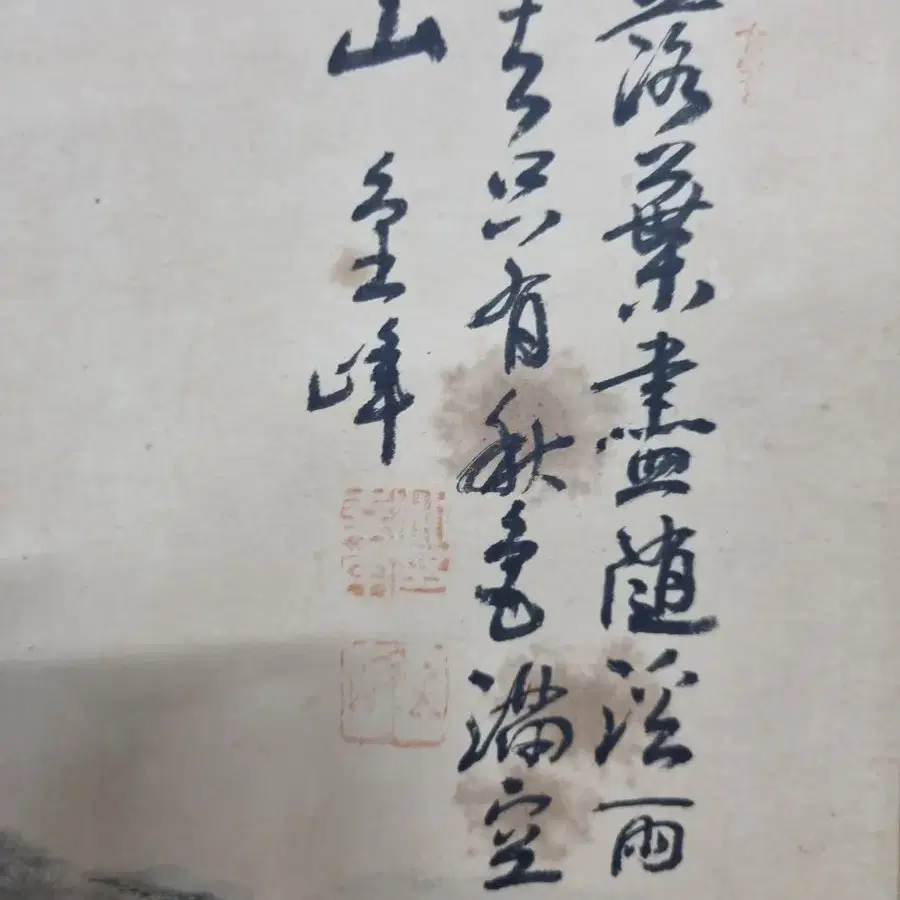 落葉盡隨溪雨
去只有秋色滿空
山 峰